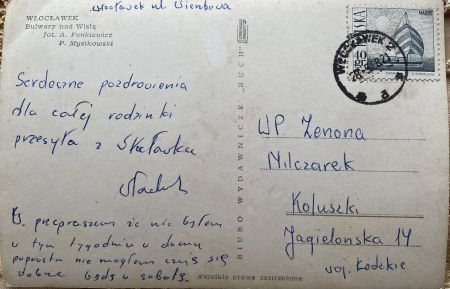 Włocławek ul. Wienbowa
WŁOCŁAWEK
Bulwary nad Wisłą
fot. A. Funkiewicz
P. Mystkowski
Serdeczne pozdrowienia
dla całej rodzinki
przesyła z
przepraszam że nie byłem
w tym tygodniu w domu
poprostu nie mogłem czuję się
dobrze będę w sobotę.
BIURO WYDAWNICZE „RUCH"
Wszelkie prawa zastrzeżone
WŁOCŁAWEK 2
a
10
GR
WP. Zenona
Milczarek
Koluszki
Jagielońska 14
woj. Łódzkie